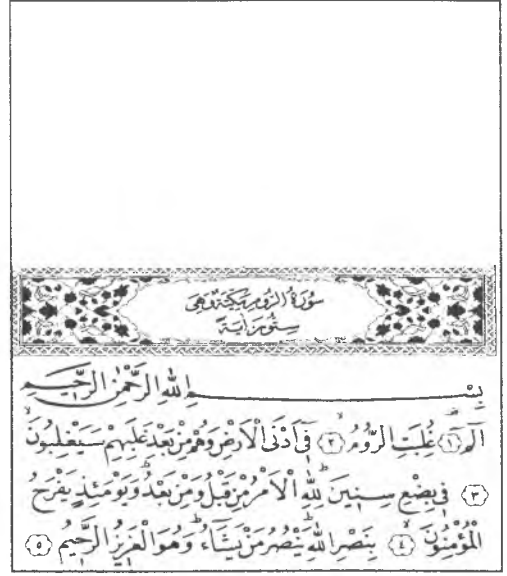 سُورَةُ الرُّومِ مَكِّيَّةٌ وَهِيَ
سِتُّونَ اٰيَةً
بِسْــــــــمِ اللهِ الرَّحْمٰنِ الرَّحٖيمِ
الٓمٓ ﴿١﴾ غُلِبَتِ الرُّومُۙ ﴿٢﴾ فٖٓي اَدْنَى الْاَرْضِ وَهُمْ مِنْ بَعْدِ غَلَبِهِمْ سَيَغْلِبُونَۙ
﴿٣﴾ فٖي بِضْعِ سِنٖينَؕ لِلّٰهِ الْاَمْرُ مِنْ قَبْلُ وَمِنْ بَعْدُؕ وَيَوْمَئِذٍ يَفْرَحُ
الْمُؤْمِنُونَۙ ﴿٤﴾ بِنَصْرِ اللهِؕ يَنْصُرُ مَنْ يَشَٓاءُؕ وَهُوَ الْعَزٖيزُ الرَّحٖيمُ ﴿٥﴾